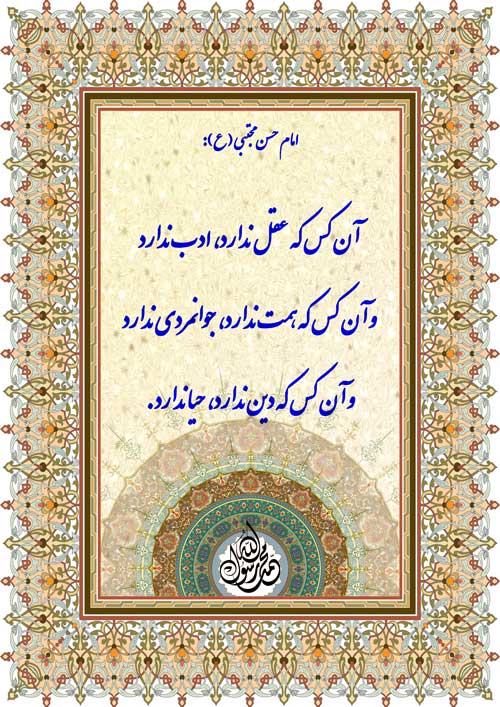 امام حسن مجتبی (ع):
آن کس که عقل ندارد، ادب ندارد
و آن کس که همت ندارد، جوانمردی ندارد
و آن کس که دین ندارد، حیا ندارد.
محمد رسول الله